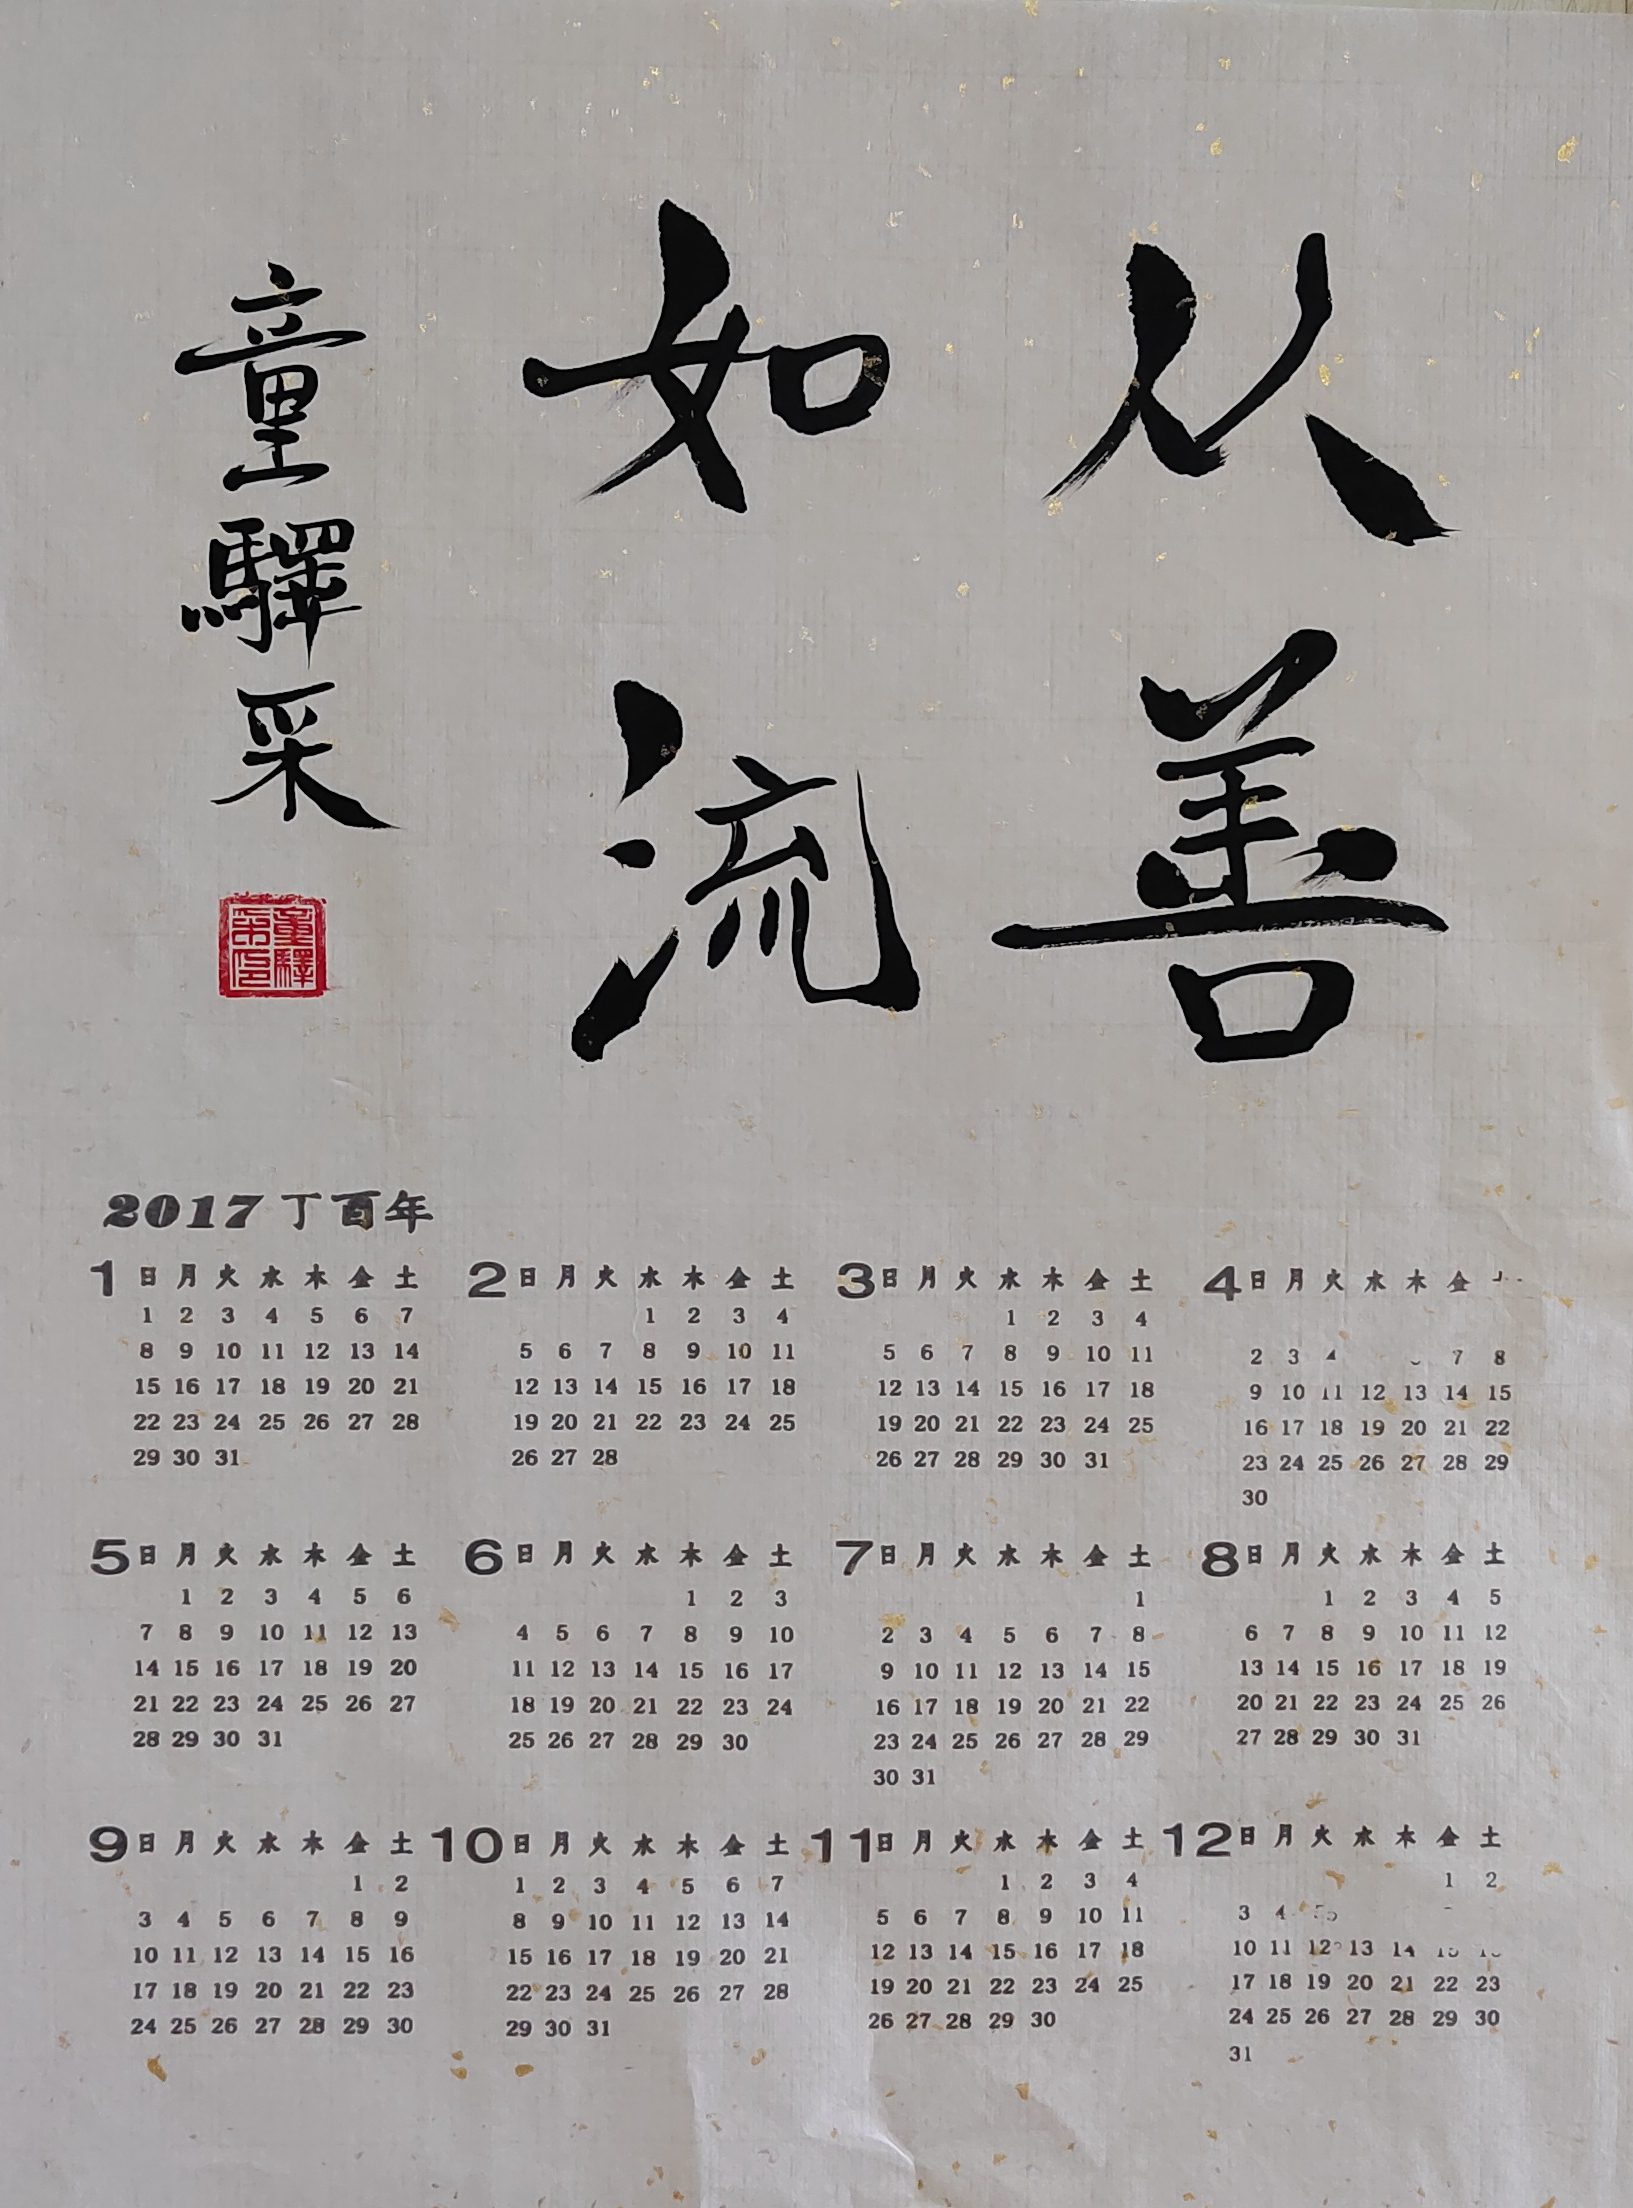 从善
如流
童驛采
童驛
采印
2017 丁酉年
1 日 月 火 水 木 金 土
1 2 3 4 5 6 7
8 9 10 11 12 13 14
15 16 17 18 19 20 21
22 23 24 25 26 27 28
29 30 31
2 日 月 火 水 木 金 土
1 2 3 4
5 6 7 8 9 10 11
12 13 14 15 16 17 18
19 20 21 22 23 24 25
26 27 28
3 日 月 火 水 木 金 土
1 2 3 4
5 6 7 8 9 10 11
12 13 14 15 16 17 18
19 20 21 22 23 24 25
26 27 28 29 30 31
4 日 月 火 水 木 金
2 3 4 7 8
9 10 11 12 13 14 15
16 17 18 19 20 21 22
23 24 25 26 27 28 29
30
5 日 月 火 水 木 金 土
1 2 3 4 5 6
7 8 9 10 11 12 13
14 15 16 17 18 19 20
21 22 23 24 25 26 27
28 29 30 31
6 日 月 火 水 木 金 土
1 2 3
4 5 6 7 8 9 10
11 12 13 14 15 16 17
18 19 20 21 22 23 24
25 26 27 28 29 30
7 日 月 火 水 木 金 土
1
2 3 4 5 6 7 8
9 10 11 12 13 14 15
16 17 18 19 20 21 22
23 24 25 26 27 28 29
30 31
8 日 月 火 水 木 金 土
1 2 3 4 5
6 7 8 9 10 11 12
13 14 15 16 17 18 19
20 21 22 23 24 25 26
27 28 29 30 31
9 日 月 火 水 木 金 土
1 2
3 4 5 6 7 8 9
10 11 12 13 14 15 16
17 18 19 20 21 22 23
24 25 26 27 28 29 30
10 日 月 火 水 木 金 土
1 2 3 4 5 6 7
8 9 10 11 12 13 14
15 16 17 18 19 20 21
22 23 24 25 26 27 28
29 30 31
11 日 月 火 水 木 金 土
1 2 3 4
5 6 7 8 9 10 11
12 13 14 15 16 17 18
19 20 21 22 23 24 25
26 27 28 29 30
12 日 月 火 水 木 金 土
1 2
3 4
10 11 12 13 14
17 18 19 20 21 22 23
24 25 26 27 28 29 30
31